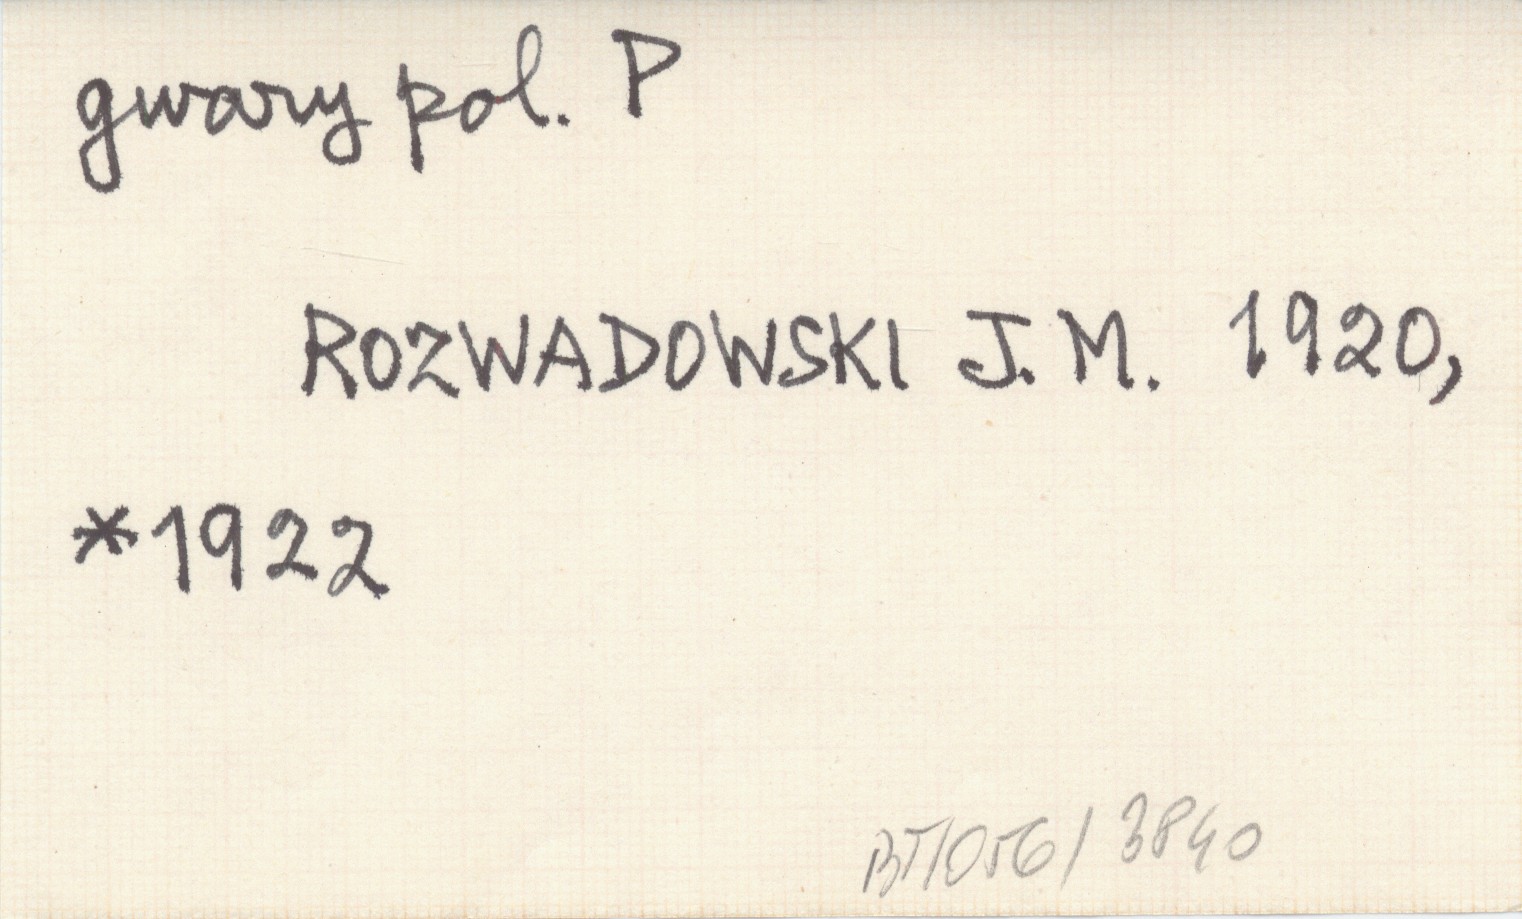 gwary pol. P
ROZWADOWSKI J. M. 1920,
*1922
BT/056/3840